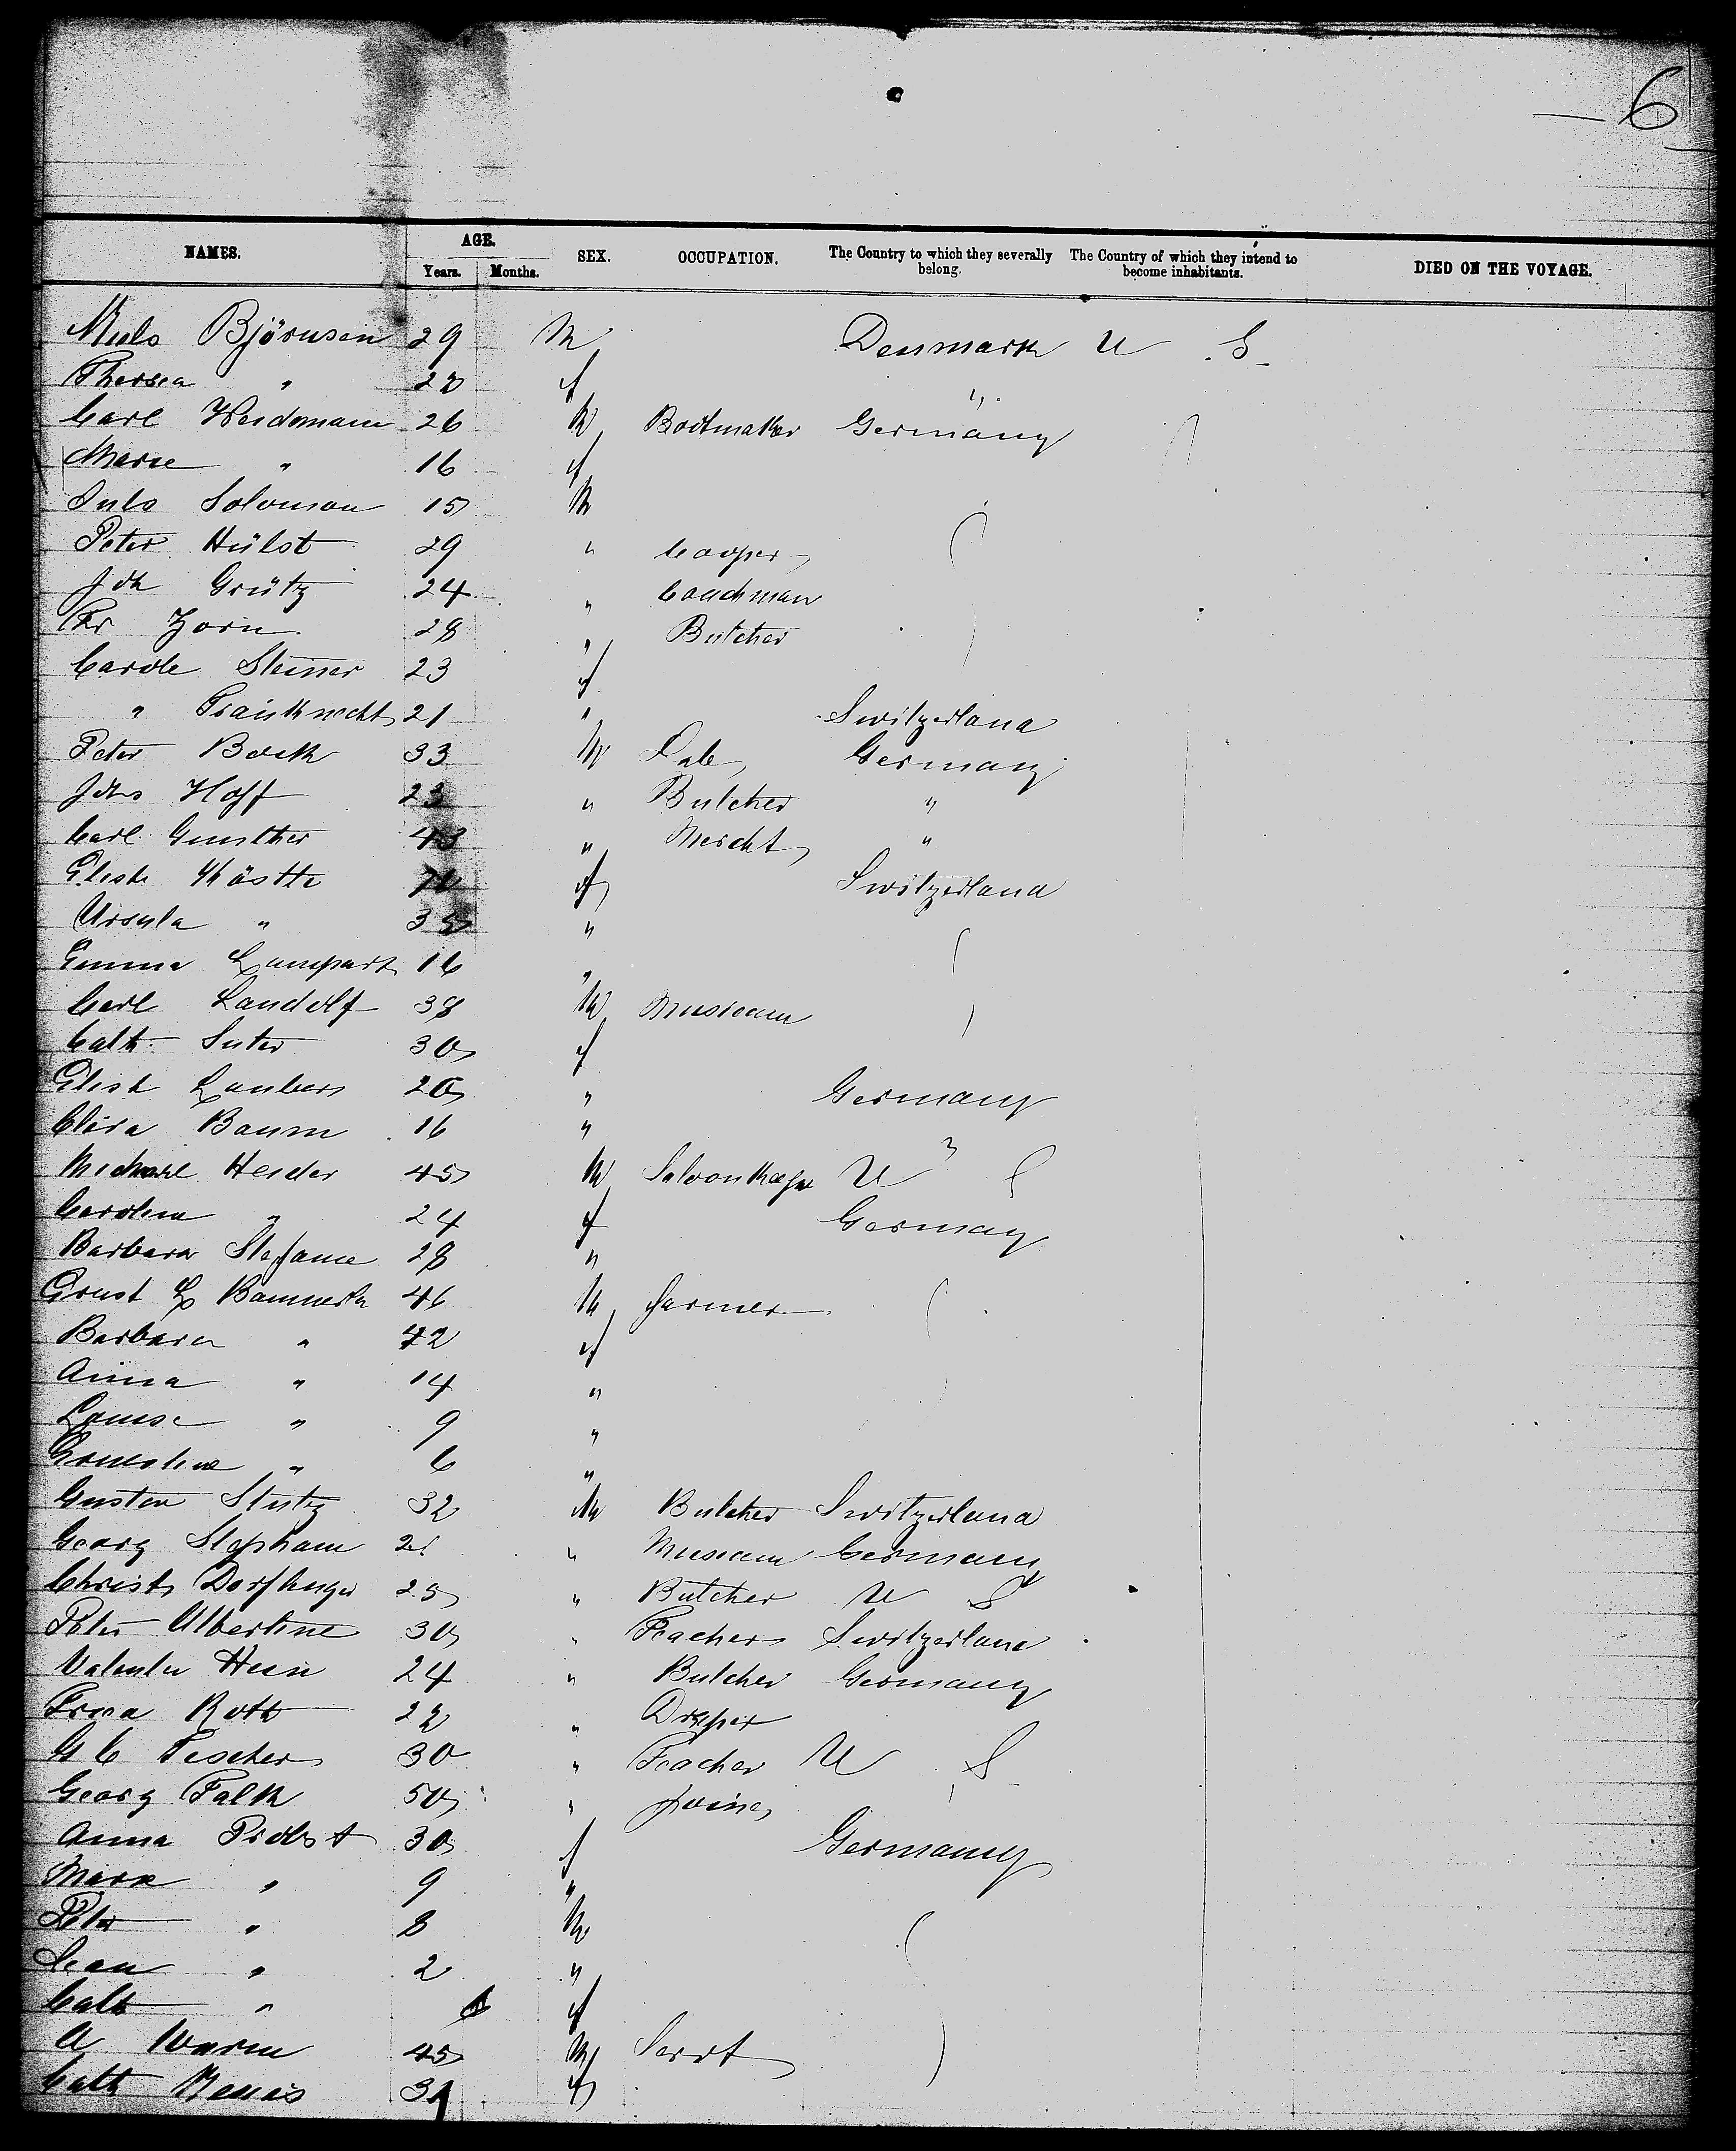 6
NAMES. AGE. Years. Months. SEX. OCCUPATION. The Country to which they severally belong. The Country of which they intend to become inhabitants. DIED ON THE VOYAGE.
Björnsen 29 M Denmark U S
Theresa " 22 f "
Carl Weidmann 26 M Bootmaker Germany
Marie " 16 f
Solomon 15 M
Peter Hülst 29 " Cooper
Joh Grütz 24 " Coachman
Fr Zorn 28 " Butcher
Carole Steiner 23 f
" 21 " Switzerland
Peter Bock 33 M Germany
Johs Hoff 23 " Butcher "
Carl Gunther 43 " Mercht "
Elisth f Switzerland
Ursula " "
Emma Lampart 16 "
Carl Landolf 38 M Musican
Cath Suter 30 f
Elish Laubers 20 " Germany
Clara Baum 16 "
Michael Heider 45 M Saloonkeeper U S
Carolina " 24 f Germany
Barbara Stefanie 28 "
Ernst L 46 M farmer
Barbara " 42 f
Anna " 14 "
Louise " 9 "
Ernestine " 6 "
Gustav Stutz 32 M Butcher Switzerland
Georg Stephani 21 " Musican Germany
Christ 25 " Butcher U S
Peter Albertine 30 " Teacher Switzerland
Valentin Hein 24 " Butcher Germany
Roth 22 " Draper
G C Tescher 30 " Teacher U S
Georg Falk 50 " Joiner
Anna Probst 30 f Germany
Marie " 9 "
Peter " 8 M
" 2 "
Cath " 6 f
A 45 M Servt
Cath 31 f